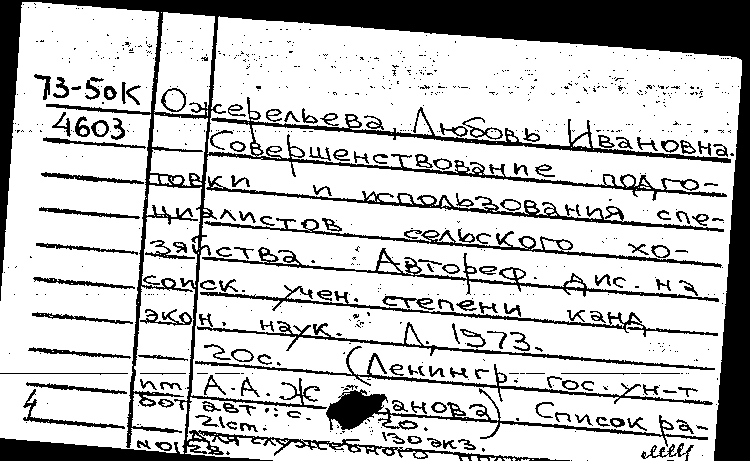 73-5ок Ожерельева, Любовь Ивановна.
4603 Совершенствование подго-
товки и использования спе-
циалистов сельского хо-
зяйства. Автореф. дис. на
соиск. учен. степени канд
экон. наук. Л., 1973.
20с. (Ленингр. гос. ун-т
им А.А. Ж анова). Список ра-
бот авт.: с. 20.
4 21ст. 130 экз.
для служебного